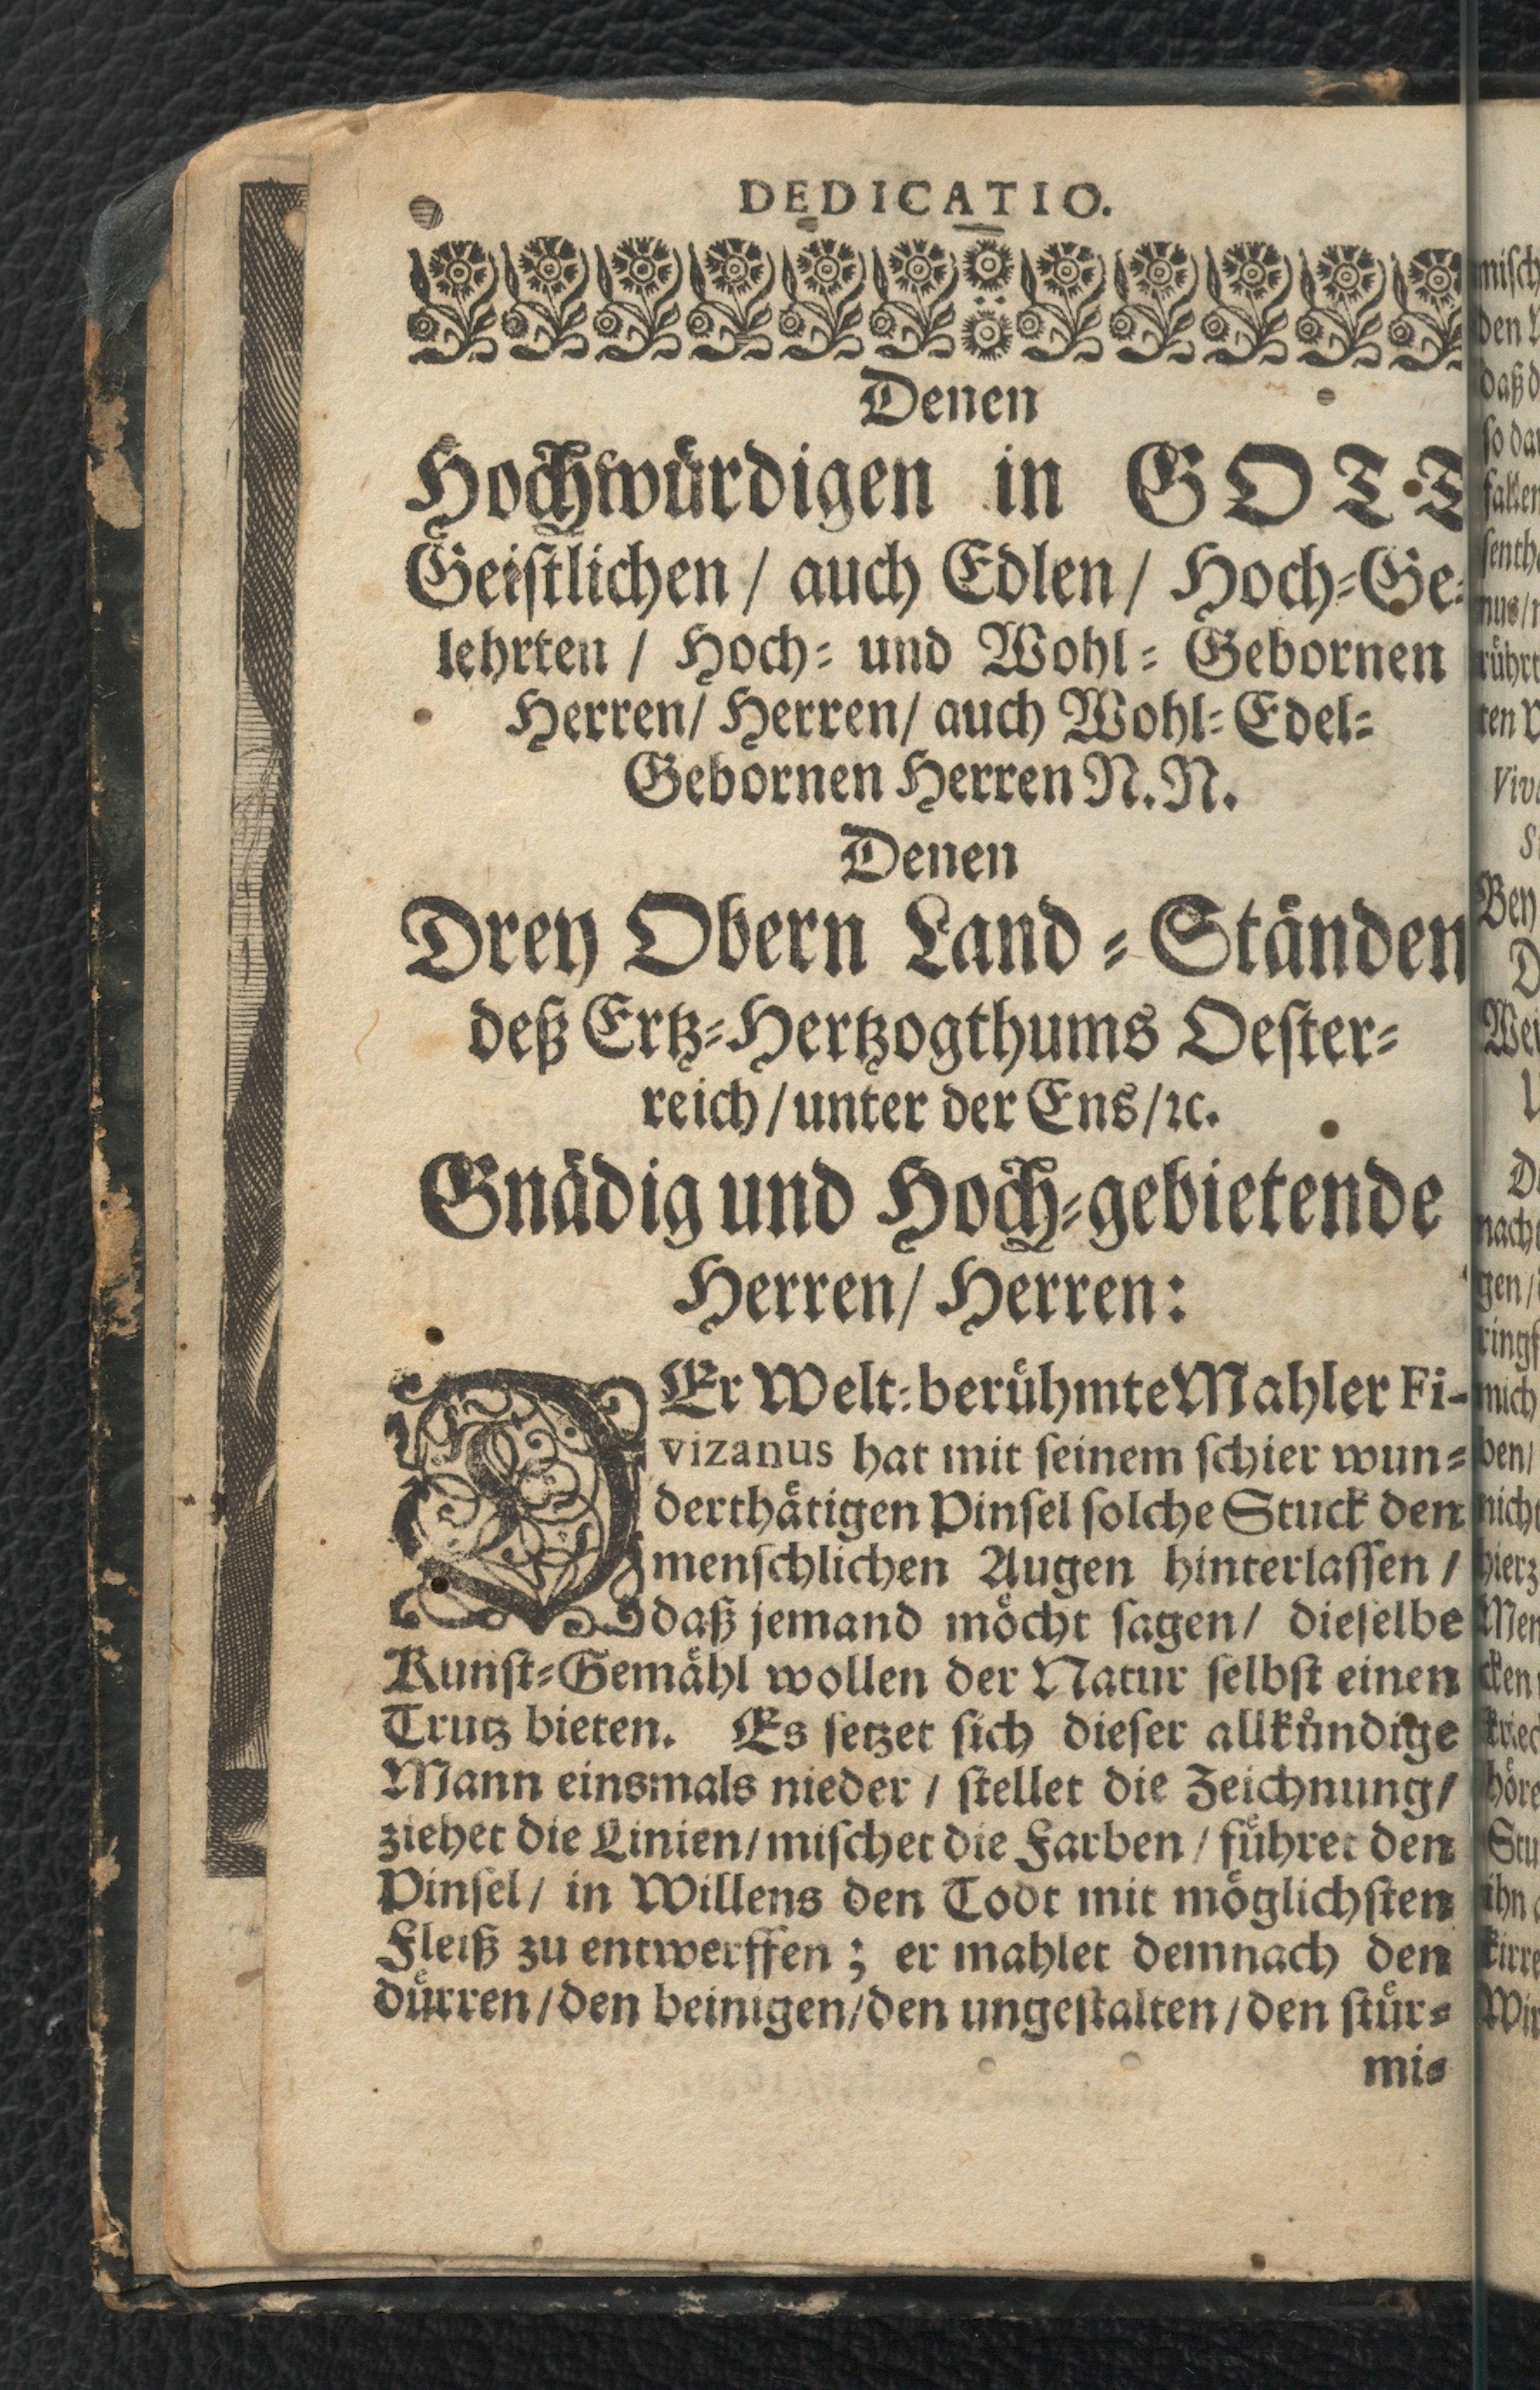 DEDICATIO.
Denen
Hochwürdigen in GOTT
Geistlichen / auch Edlen / Hoch-Ge-
lehrten / Hoch- und Wohl- Gebornen
Herren / Herren / auch Wohl-Edel-
Gebornen Herren N. N.
Denen
Drey Obern Land-Ständen
deß Ertz-Hertzogthums Oester-
reich / unter der Ens / ꝛc.
Gnädig und Hoch-gebietende
Herren / Herren:
DEr Welt-berühmte Mahler Fi-
vizanus hat mit seinem schier wun-
derthätigen Pinsel solche Stuck den
menschlichen Augen hinterlassen /
daß jemand möcht sagen / dieselbe
Kunst-Gemähl wollen der Natur selbst einen
Trutz bieten. Es setzet sich dieser allkündige
Mann einsmals nieder / stellet die Zeichnung /
ziehet die Linien / mischet die Farben / führet den
Pinsel / in Willens den Todt mit möglichsten
Fleiß zu entwerffen ; er mahlet demnach den
dürren / den beinigen / den ungestalten / den stür-
mi-